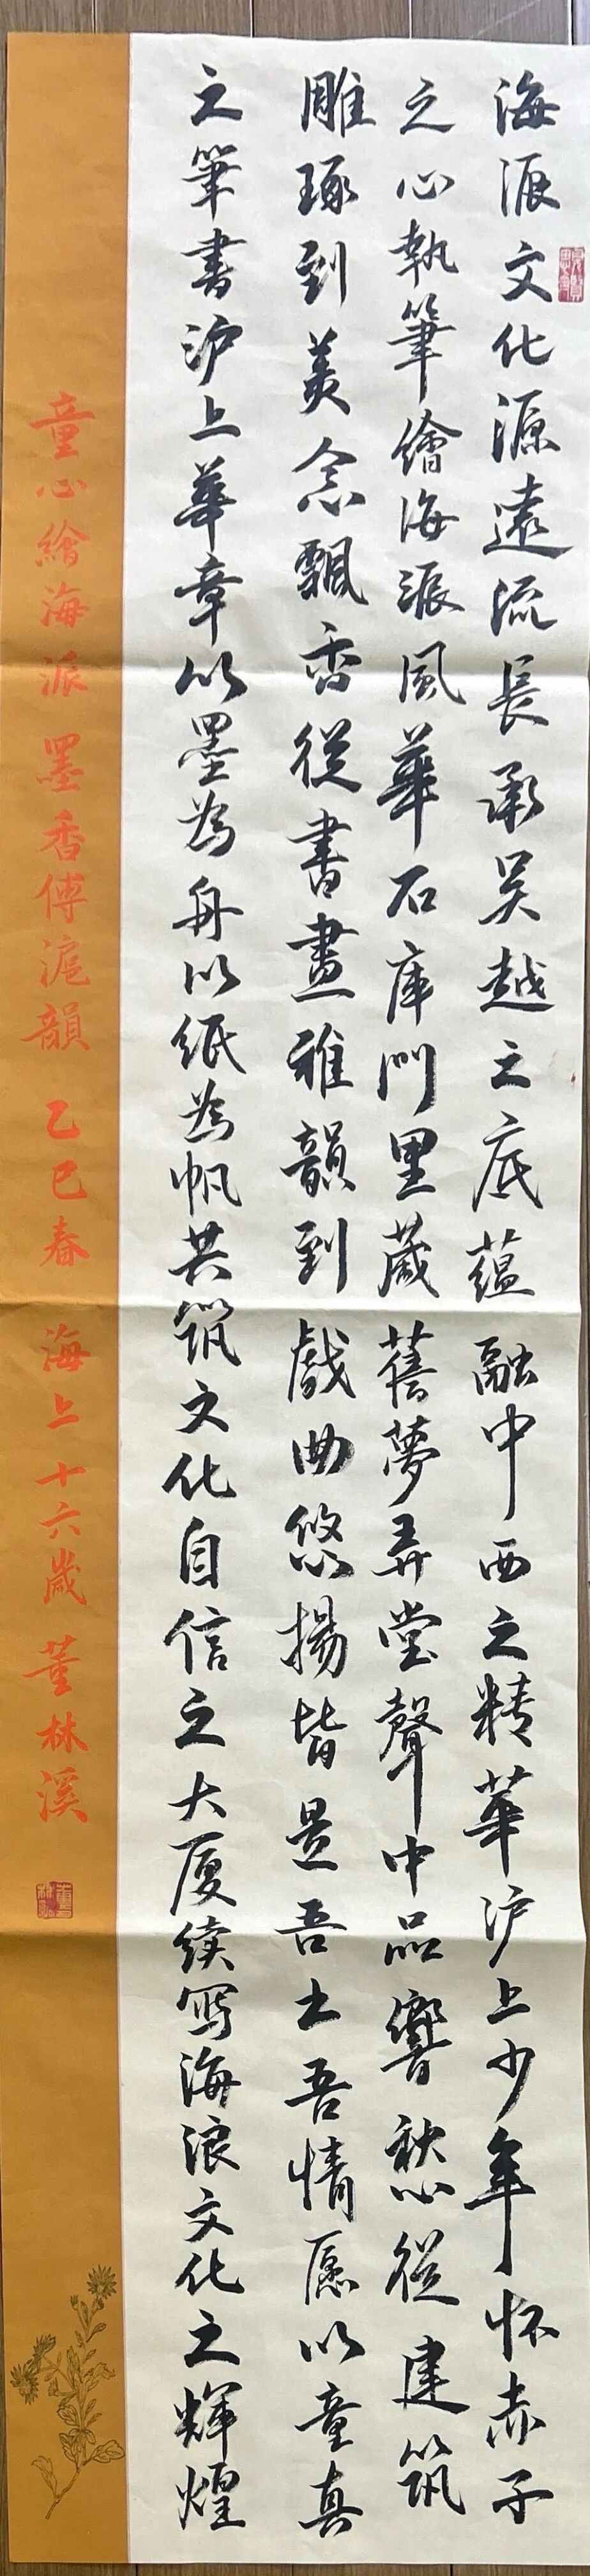 海派文化源遠流長承吴越之底蕴融中西之精華沪上少年怀赤子
之心執筆繪海派風華石庫门里藏舊夢弄堂聲中品響愁從建筑
雕琢到美念飄香從書畫雅韻到戲曲悠揚皆是吾土吾情愿以童真
之筆書沪上華章以墨為舟以紙為帆共筑文化自信之大厦续写海浪文化之輝煌
童心繪海派 墨香傳滬韻 乙巳春 海上十六歲 董林溪